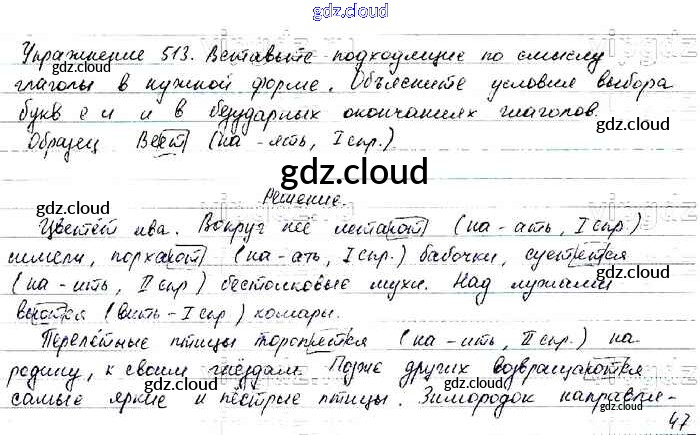 gdz.cloud
Упражнение 513. Вставьте подходящие по смыслу
глаголы в нужной форме. Объясните условия выбора
букв е и и в безударных окончаниях глаголов.
Образец. Веет (на -ять, I спр.)
gdz.cloud
Решение.
Цветёт ива. Вокруг неё летают (на - ать, I спр.)
шмели, порхают (на - ать, I спр.) бабочки, суетятся
(на - ить, II спр) бестолковые мухи. Над лужами
вьются (вить - I спр) комары.
Перелётные птицы торопятся (на - ить, II спр.) на
родину, к своим гнёздам. Позже других возвращаются
самые яркие и пёстрые птицы. Зимородок направля-
47